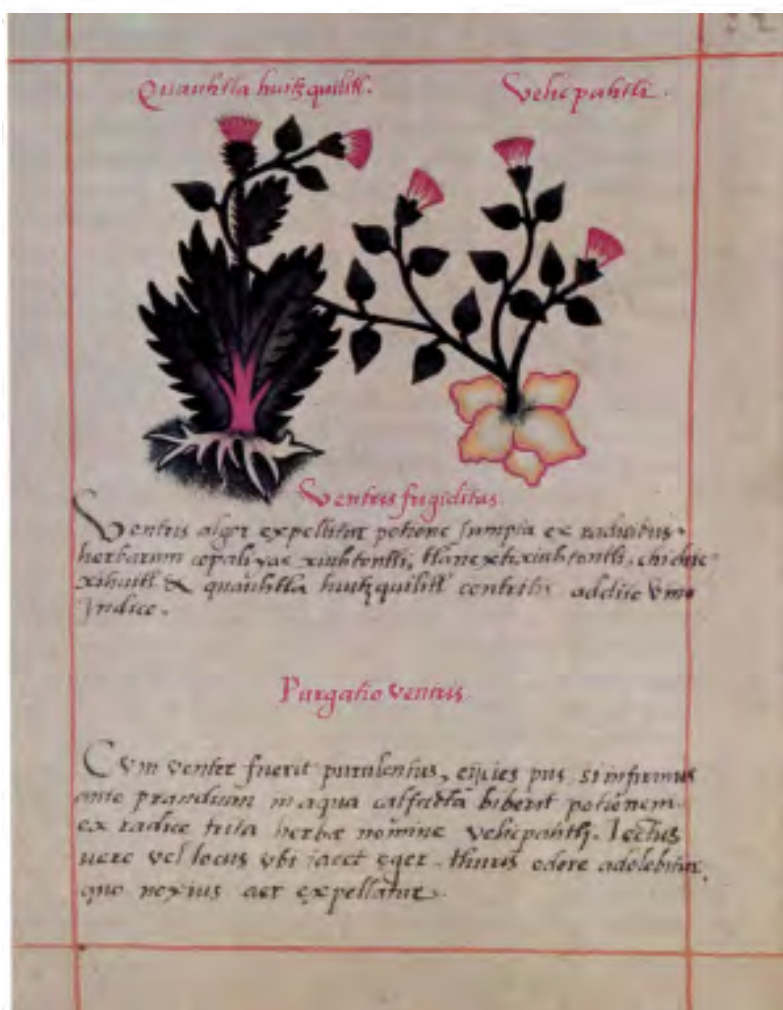 32
Quauhtla huitzquilitl. Velicpahtli.
Ventris frigiditas.
Ventris algor expellitur potione sumpta ex radicibus
herbarum copaliyac xiuhtontli, tlanextixiuhtontli, chichic
xihuitl & quauhtla huitzquilitl contritis addito vino
Indico.
Purgatio ventris
Cvm venter fuerit purulentus, eijcies pus, si infirmus
ante prandium in aqua calfacta biberit potionem
ex radice trita herbæ nomine velicpahtli. Lectus
uero vel locus vbi iacet ęger thuris odore adolebitur,
quo noxius aer expellatur.